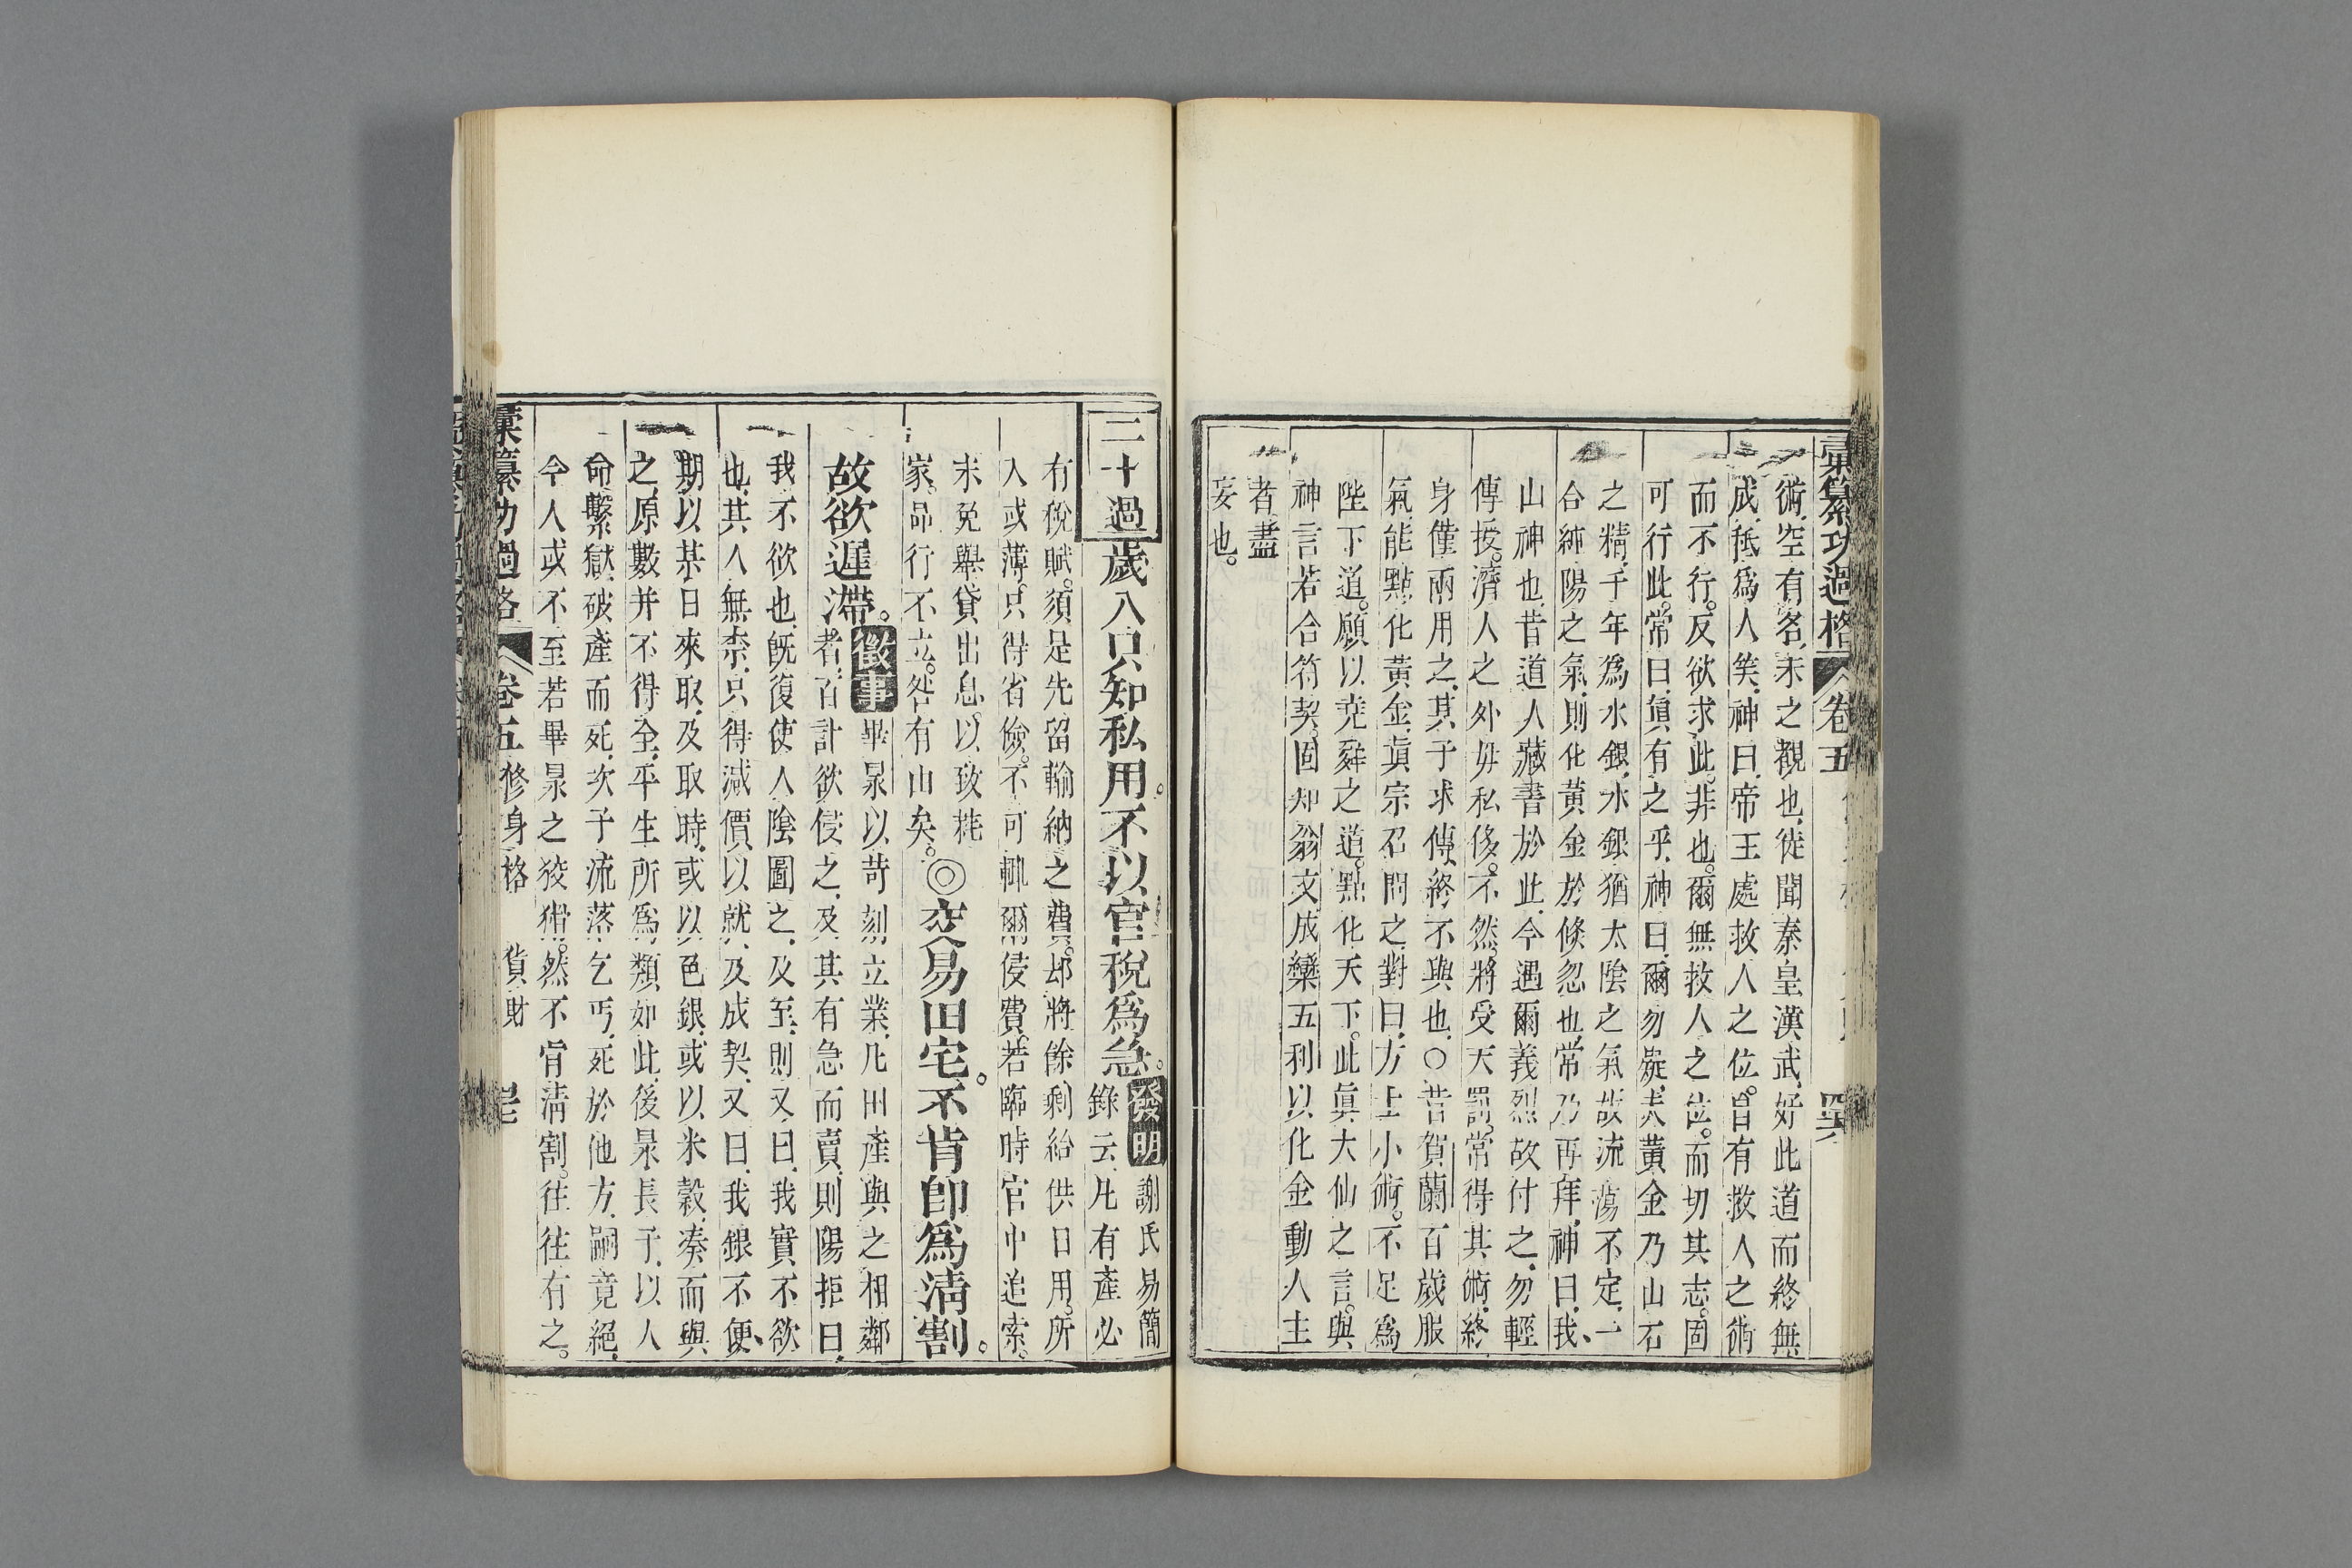 彙纂功過格 卷五
術空有名未之覩也徒聞秦皇漢武好此道而終無
成秪爲人笑神曰帝王處救人之位自有救人之術
而不行反欲求此非也爾無救人之位而切其志固
可行此常曰眞有之乎神曰爾勿疑夫黃金乃山石
之精千年爲水銀水銀猶太陰之氣故流蕩不定一
合純陽之氣則化黃金於倐忽也常乃再拜神曰我
山神也昔道人藏書於此今遇爾義烈故付之勿輕
傳授濟人之外毋私侈不然將受天罰常得其術終
身僅兩用之其于求傳終不與也○昔賀蘭百歲服
氣能點化黃金眞宗召問之對曰方士小術不足爲
陛下道願以堯舜之道點化天下此眞大仙之言與
神言若合符契固知翁文成欒五利以化金動人主
者盡
妄也
三十過歲入只知私用不以官稅爲急 發明 謝氏易簡
錄云凡有產必
有稅賦須是先留輸納之費却將餘剩給供日用所
入或薄只得省儉不可輒爾侵費若臨時官中追索
未免舉貸出息以致耗
家品行不立咎有山矣◎交易田宅不肯卽爲淸割
故欲遲滯 徵事 畢杲以苛刻立業凡田產與之相鄰
者百計欲侵之及其有急而賣則陽拒曰
我不欲也旣復使人陰圖之及至則又曰我實不欲
也其人無柰只得減價以就及成契又曰我銀不便
期以某日來取及取時或以色銀或以米穀湊而與
之原數并不得全平生所爲類如此後杲長子以人
命繫獄破產而死次子流落乞丐死於他方嗣竟絕
今人或不至若畢杲之狡猾然不肯淸割往往有之
彙纂功過格 卷五 修身格 貨財